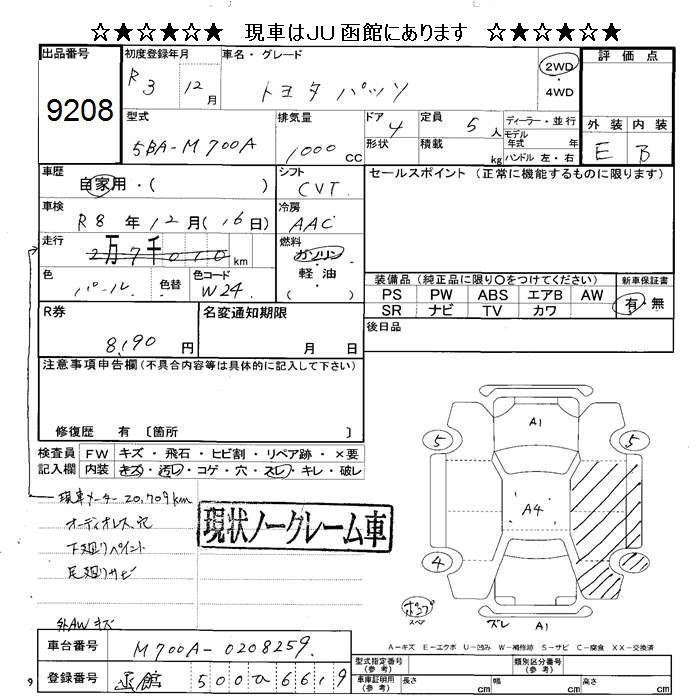 ☆★☆★☆★ 現車はJU函館にあります ☆★☆★☆★
出品番号
9208
初度登録年月
R3 12月
車名・グレード
トヨタ パッソ
2WD
・
4WD
評価点
外装 内装
E B
型式
5BA-M700A
排気量
1000 CC
ドア 4
形状
定員 5 人
積載 kg
ディーラー・並行
モデル
年式 年
ハンドル 左・右
車歴
自家用・( )
シフト
CVT
セールスポイント(正常に機能するものに限ります)
車検
R8年12月(16日)
冷房
AAC
走行
2万7千010km
燃料
ガソリン
・
軽油
( )
色
パール
色替
色コード
W24
装備品(純正品に限り〇をつけてください)
PS PW ABS エアB AW
SR ナビ TV カワ
新車保証書
有・無
R券
8,190 円
名変通知期限
月 日
後日品
注意事項申告欄(不具合内容等は具体的に記入して下さい)
修復歴 有 〔箇所 〕
検査員
記入欄
FW キズ・飛石・ヒビ割・リペア跡・×要
内装 キズ・汚レ・コゲ・穴・スレ・キレ・破レ
現車メーター20,709km
オーディオレス穴
下廻りペイント
足廻りサビ
外AWキズ
現状ノークレーム車
A1
5 5
A4
4
ポンプ
スペア
ズレ A1
A-キズ E-エクボ U-凹み W-補修跡 S-サビ C-腐食 XX-交換済
車台番号
M700A-0208259
登録番号
函館 500 6619
型式指定番号
(参考)
類別区分番号
(参考)
車庫証明用
(参考)
長さ cm
幅 cm
高さ cm
9